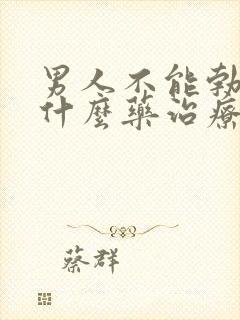 男人不能勃
什麼藥治療
蔡群